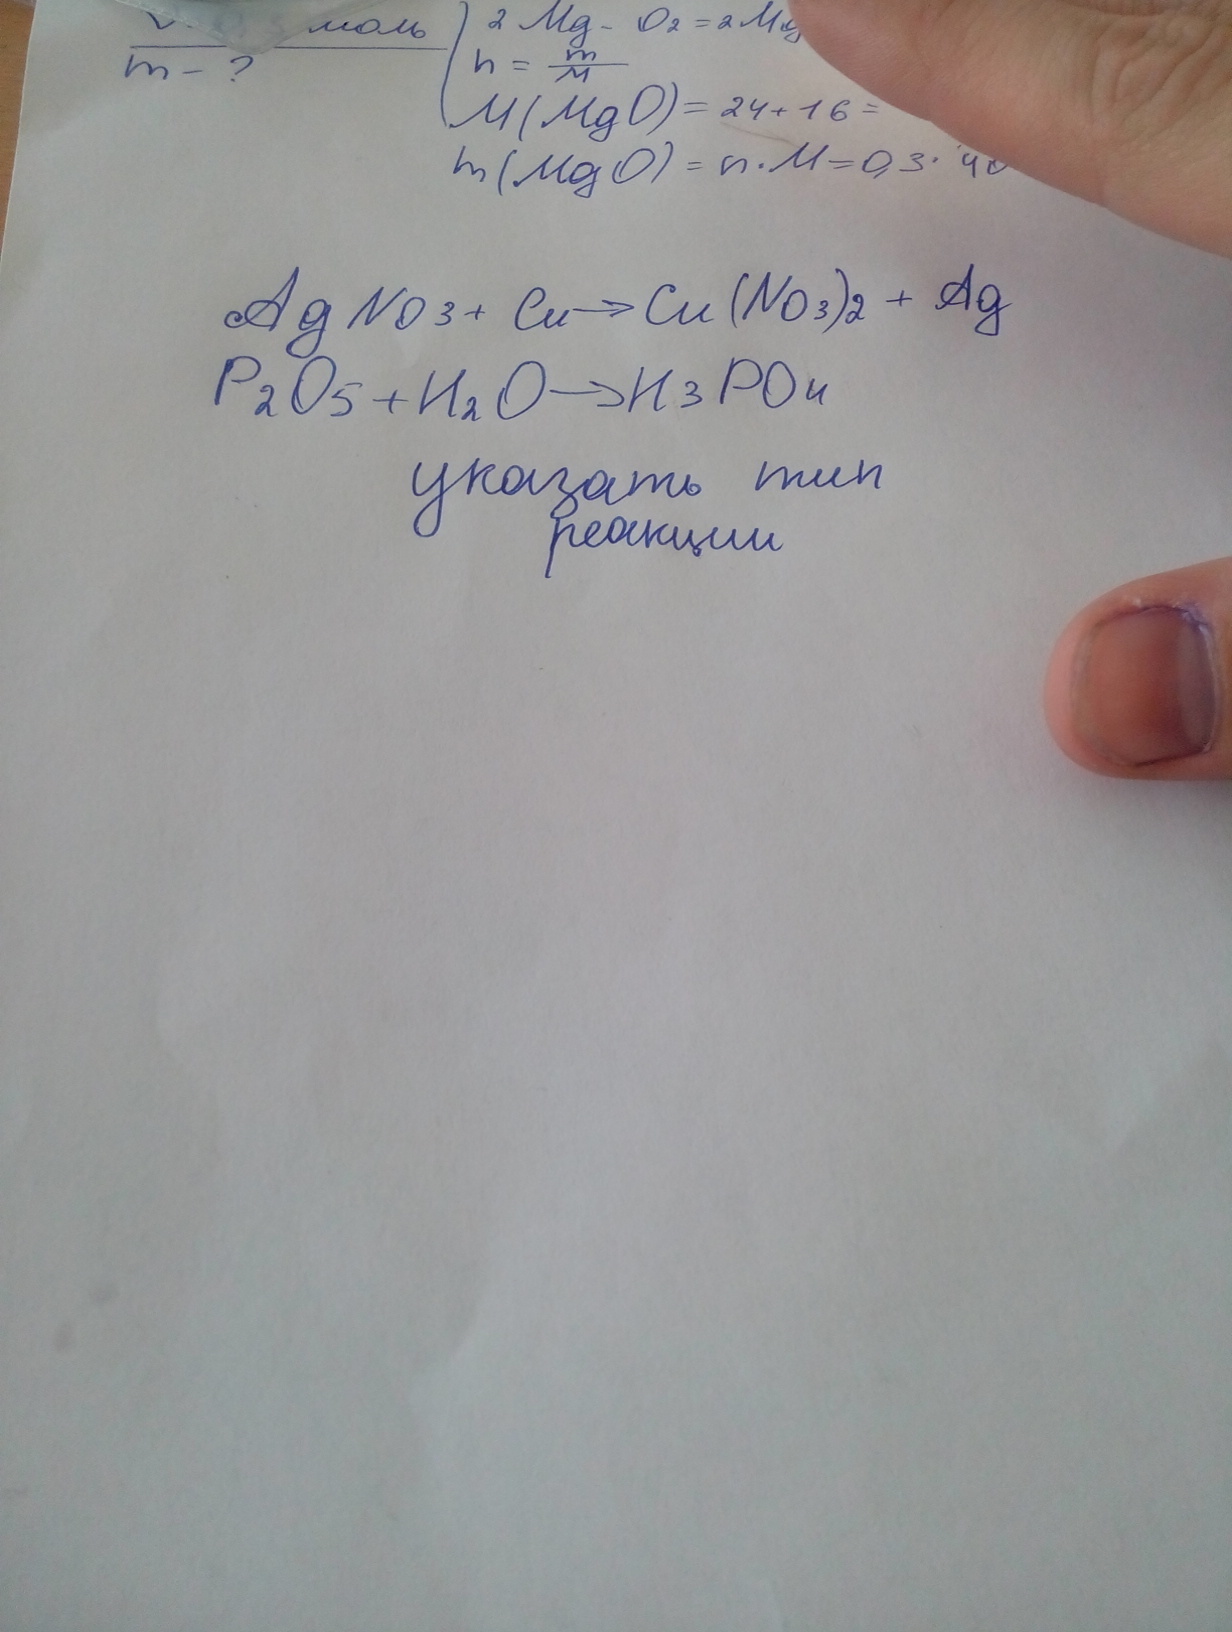 моль
m - ?
2 Mg - O2 = 2 Mg
n = m/M
M(MgO) = 24 + 16 =
m(MgO) = n · M = 0,3 · 40
AgNO3 + Cu → Cu(NO3)2 + Ag
P2O5 + H2O → H3PO4
указать тип
реакции